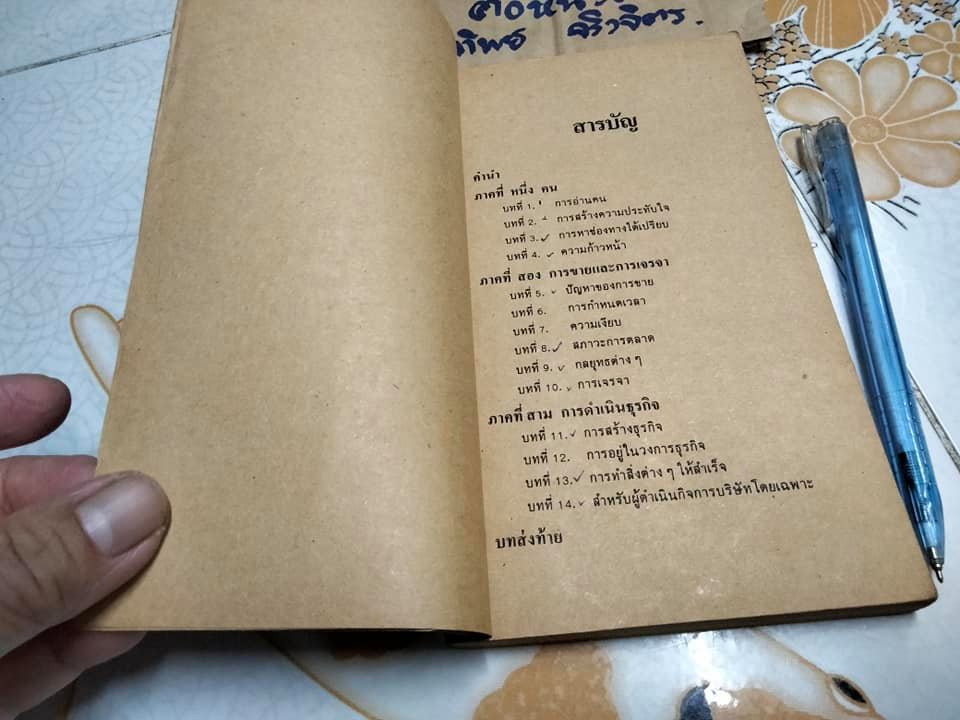 จิวจิตร.
สารบัญ
คำนำ
ภาคที่ หนึ่ง คน
บทที่ 1. การอ่านคน
บทที่ 2. การสร้างความประทับใจ
บทที่ 3. ✓ การหาช่องทางได้เปรียบ
บทที่ 4. ✓ ความก้าวหน้า
ภาคที่ สอง การขายและการเจรจา
บทที่ 5. ✓ ปัญหาของการขาย
บทที่ 6. การกำหนดเวลา
บทที่ 7. ความเงียบ
บทที่ 8. ✓ สภาวะการตลาด
บทที่ 9. ✓ กลยุทธต่าง ๆ
บทที่ 10. ✓ การเจรจา
ภาคที่ สาม การดำเนินธุรกิจ
บทที่ 11. ✓ การสร้างธุรกิจ
บทที่ 12. การอยู่ในวงการธุรกิจ
บทที่ 13. ✓ การทำสิ่งต่าง ๆ ให้สำเร็จ
บทที่ 14. ✓ สำหรับผู้ดำเนินกิจการบริษัทโดยเฉพาะ
บทส่งท้าย